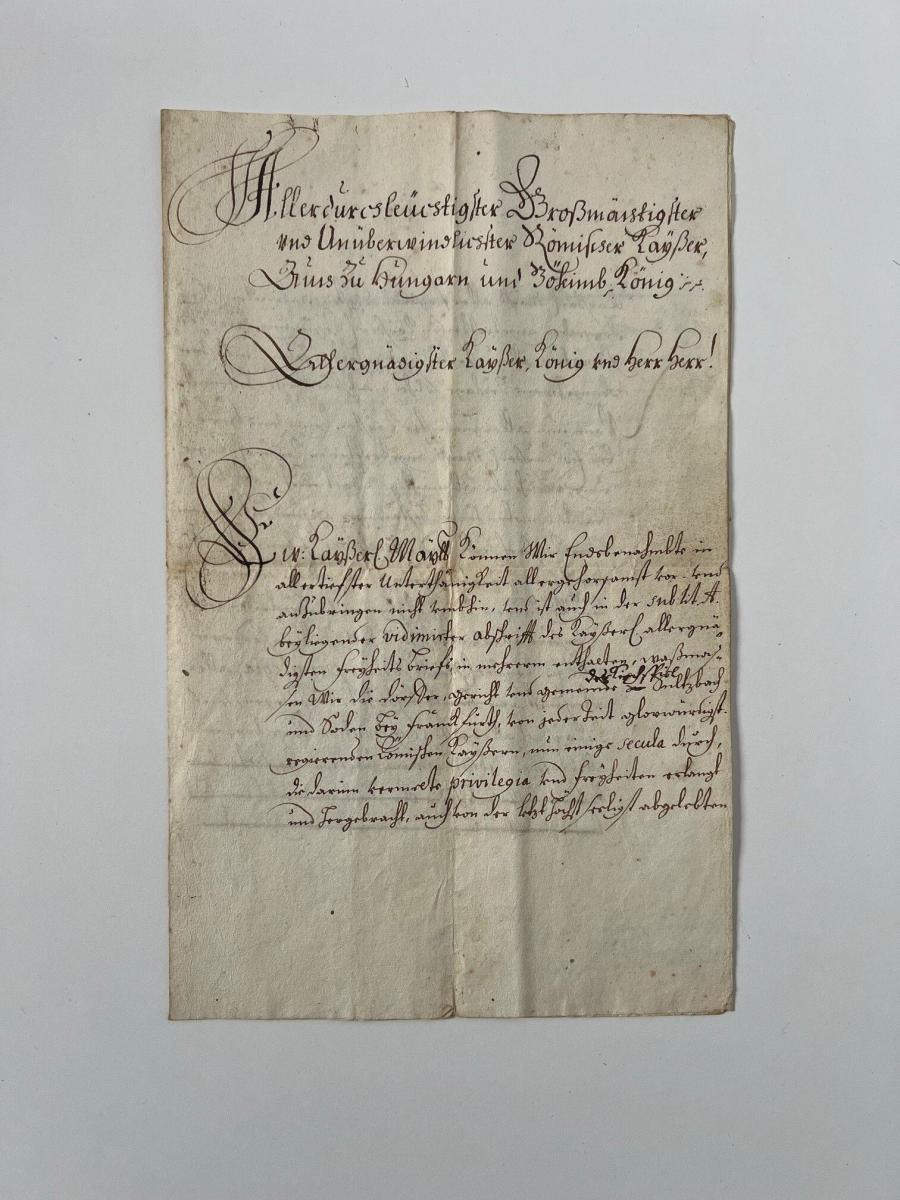 Allerdurchleüchtigster Großmächtigster
vnd Unüberwindlichster Römischer Kayßer,
Auch Zu Hungarn und Böheimb König
Allergnädigster Kayßer, König vnd Herr Herr!
Ew: Kayßerl. Mayst Können Wir Endsbenahmbte in
allertiefster Unterthänigkeit allergehorsambst vor- vnd
anzubringen nicht vmbhin, vnd ist auch in der sub lit. A.
beyliegender vidimirter abschrifft des Kayßerl. allergnä-
digsten freyheits brieffs, in mehrerm enthalten, waßma-
sen Wir die dörffer, gericht vnd gemeinde Sultzbach
und Soden bey franckfurth, von jeder Zeit glorwürdigst
regierenden Römischen Kayßern, nun einige secula durch,
die darinn vermelte privilegia vnd freyheiten erlangt
und hergebracht, auch von der letzt höchst seeligst abgelebten